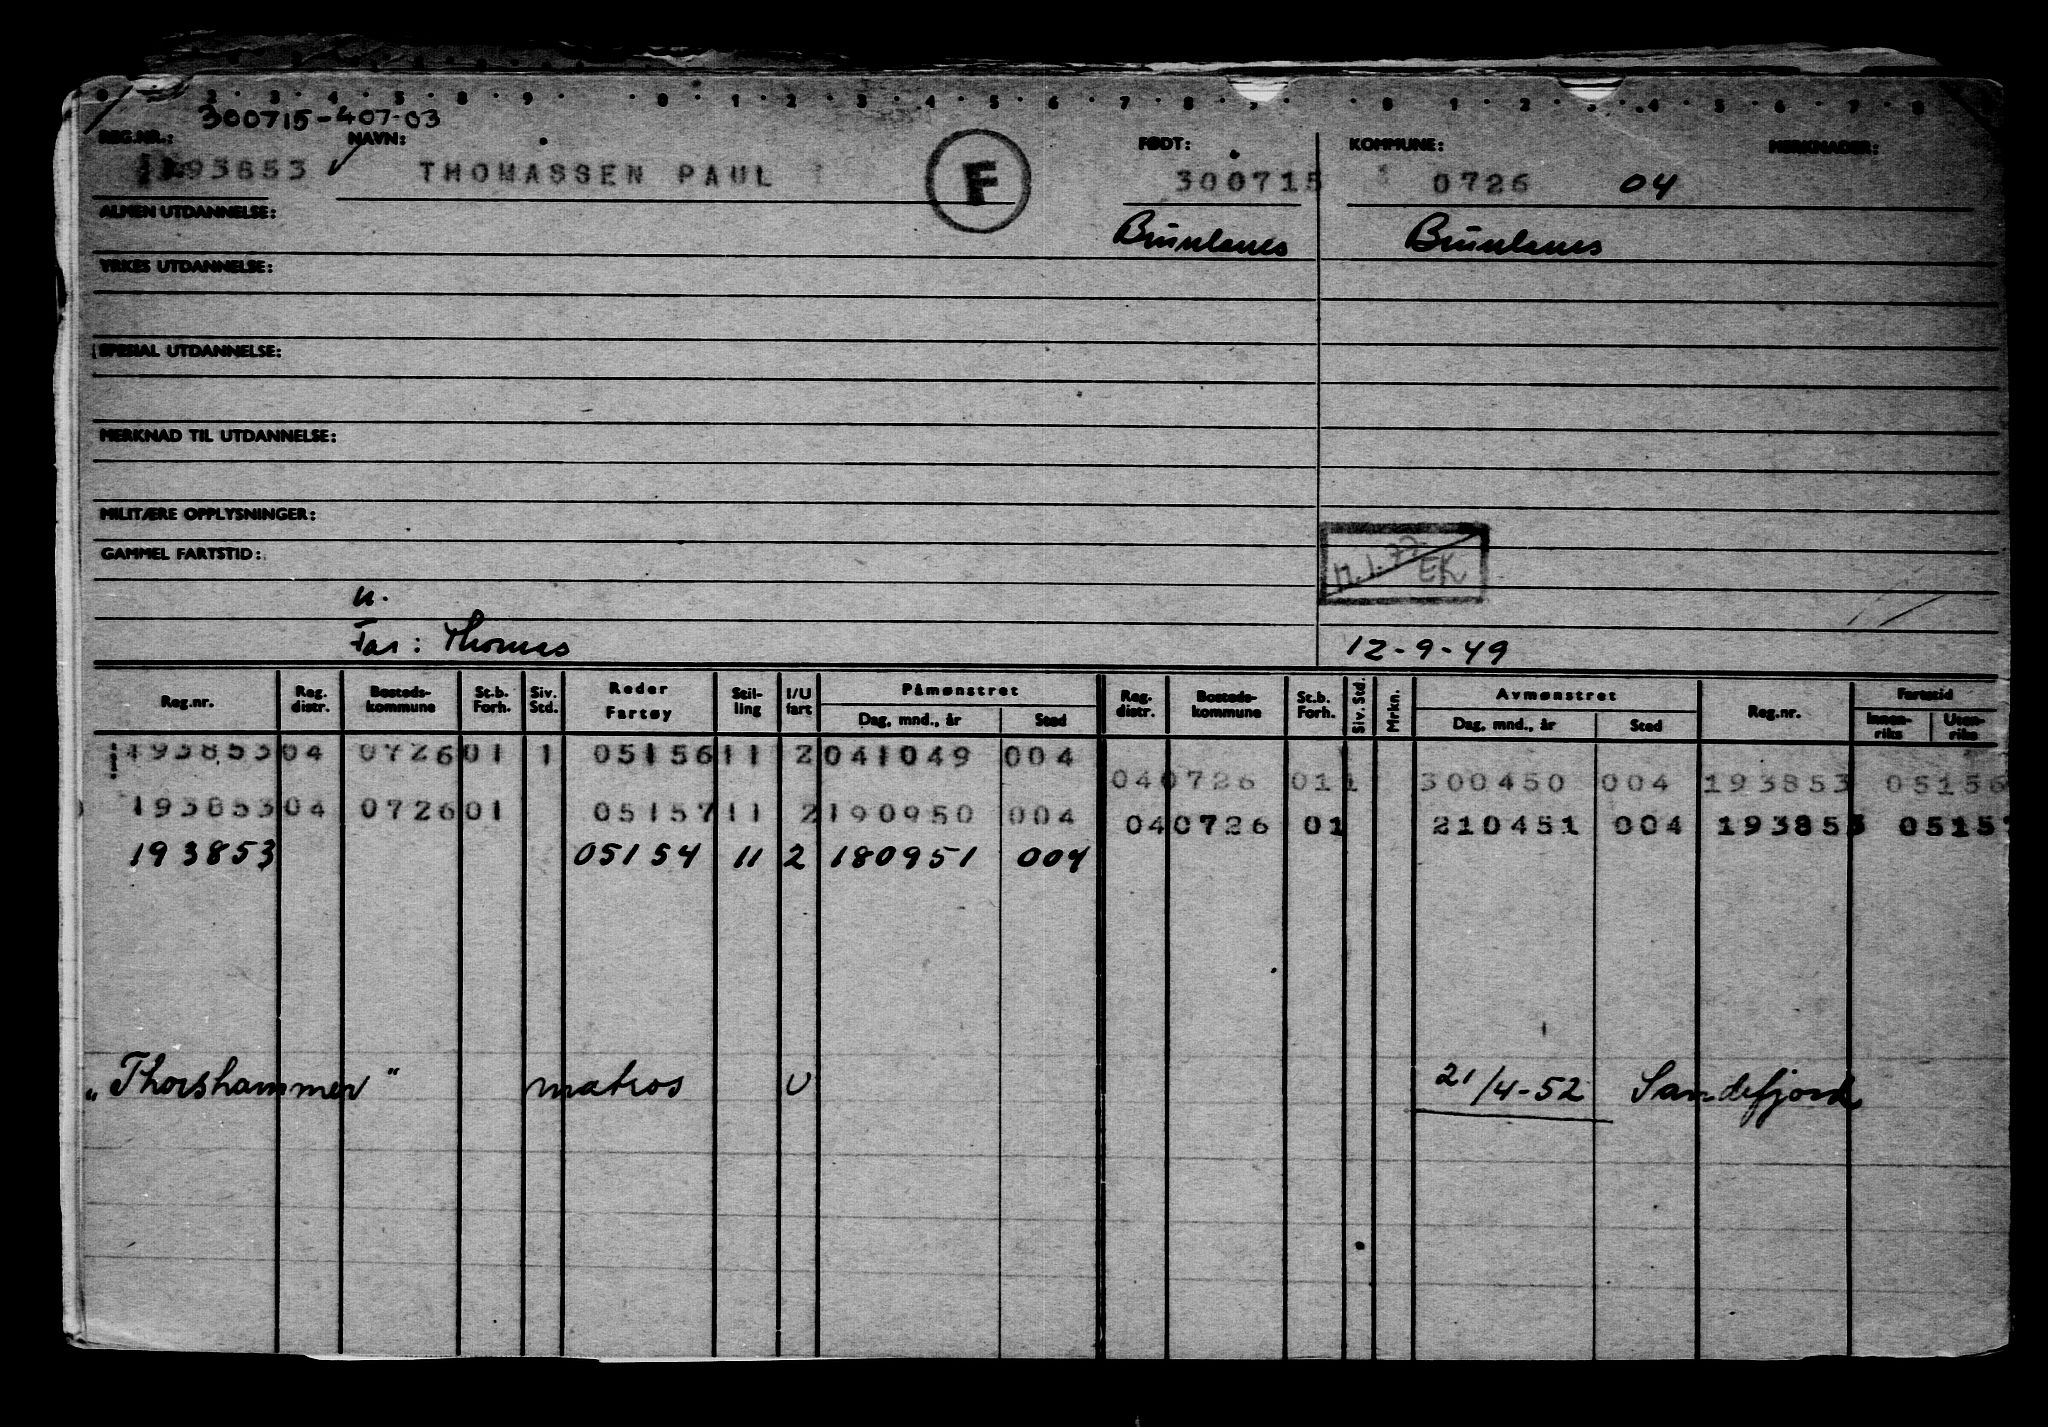 300715-407-03
REG.NR.: NAVN: FØDT: KOMMUNE: MERKNADER:
193853 THOMASSEN PAUL F 300715 0726 04
ALMEN UTDANNELSE: Brunlanes Brunlanes
YRKES UTDANNELSE:
SPESIAL UTDANNELSE:
MERKNAD TIL UTDANNELSE:
MILITÆRE OPPLYSNINGER:
GAMMEL FARTSTID: EK
u.
Far: Thomas 12-9-49
Reg.nr. Reg. distr. Bosteds-kommune St.b. Forh. Siv. Std. Reder Fartøy Stil-ling I/U fart Påmønstret Dag, mnd., år Sted Reg. distr. Bosteds-kommune St.b. Forh. Siv. Std. Mrkn. Avmønstret Dag, mnd., år Sted Reg.nr. Fartstid Innen-riks Uten-riks
193853 04 0726 01 1 05156 11 2 041049 004
04 0726 01 1 300450 004 193853 05156
193853 04 0726 01 05157 11 2 190950 004
04 0726 01 210451 004 193853 05157
193853 05154 11 2 180951 004
"Thorshammer" matros U 21/4-52 Sandefjord